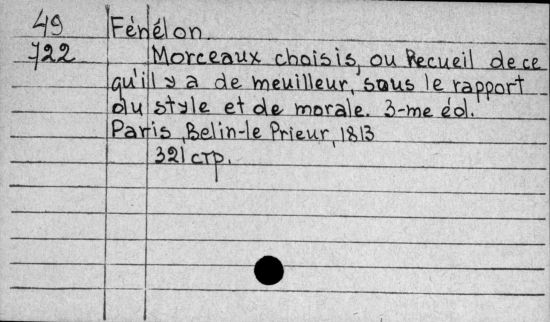 49 Fénélon.
722 Morceaux choisis, ou Recueil de ce
qu'il y a de meuilleur, sous le rapport
du style et de morale. 3-me éd.
Paris, Belin-le Prieur, 1813
321 стр.